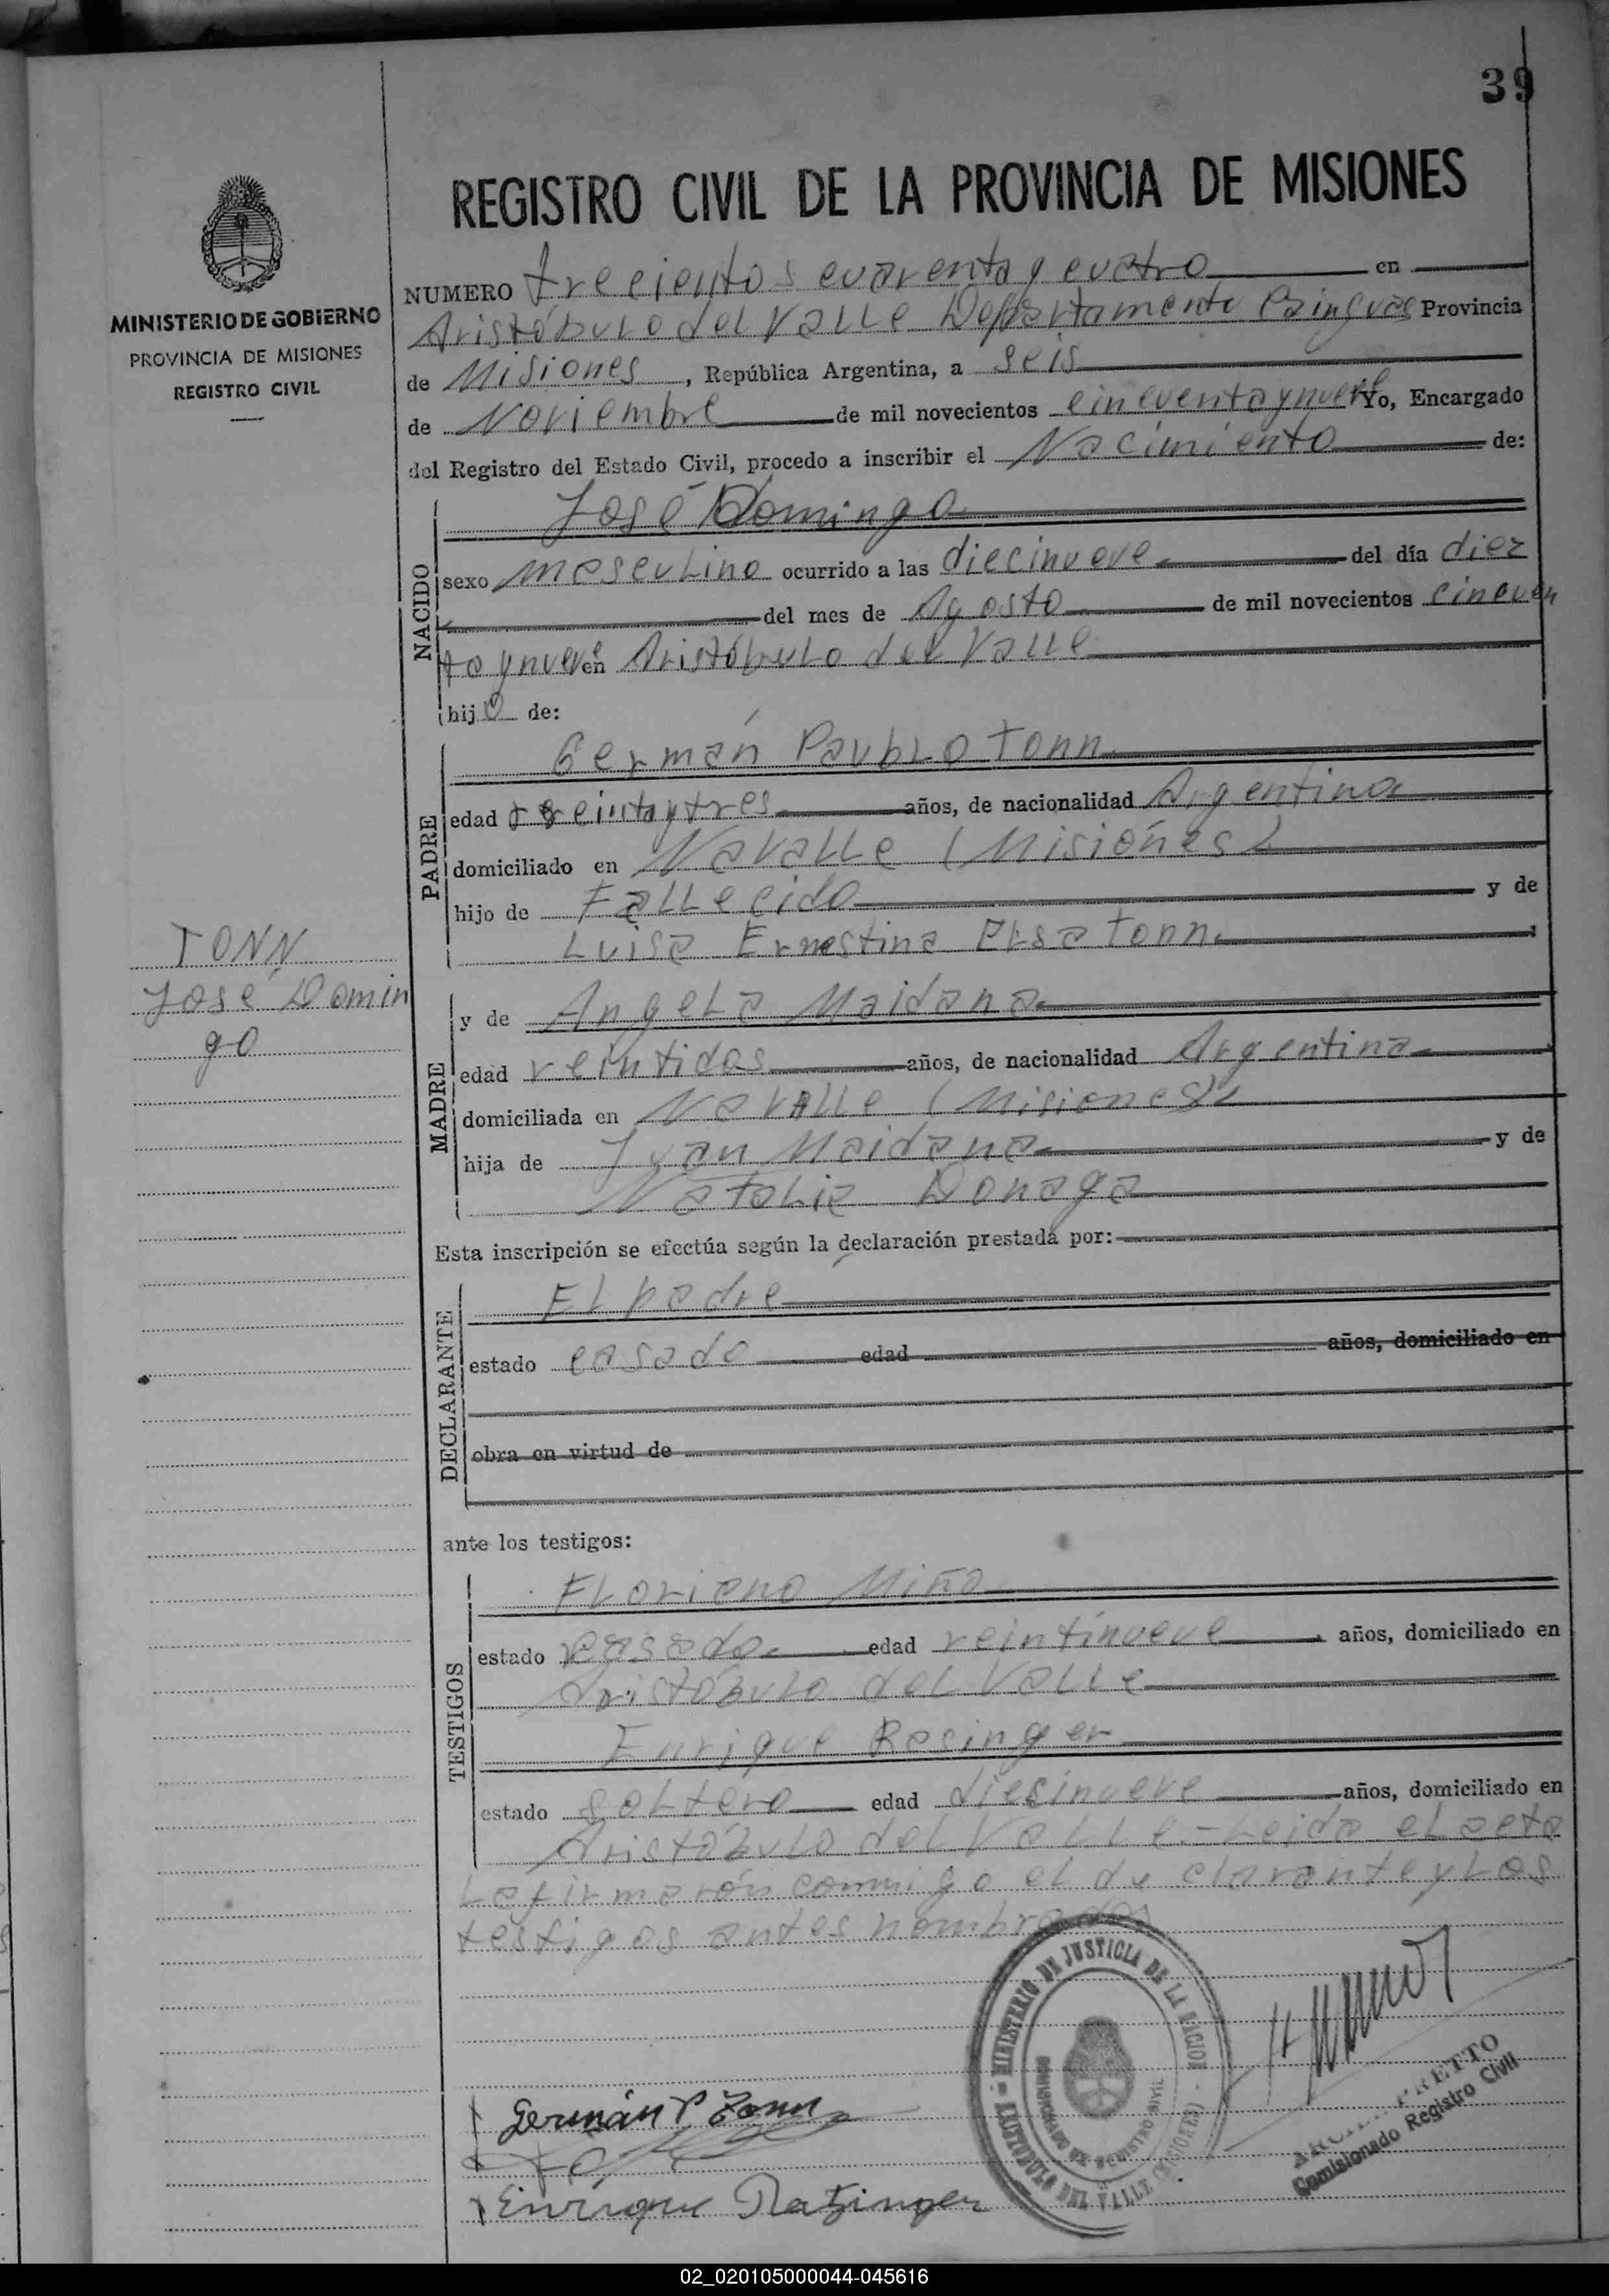 39
REGISTRO CIVIL DE LA PROVINCIA DE MISIONES
MINISTERIO DE GOBIERNO
PROVINCIA DE MISIONES
REGISTRO CIVIL
NUMERO trecientos cuarenta y cuatro en
Aristóbulo del Valle Departamento Cainguás Provincia
de Misiones, República Argentina, a seis
de Noviembre de mil novecientos cincuenta y nueve Yo, Encargado
del Registro del Estado Civil, procedo a inscribir el Nacimiento de:
NACIDO
José Domingo
sexo masculino ocurrido a las diecinueve del día diez
del mes de Agosto de mil novecientos cincuen
ta y nueve en Aristóbulo del Valle
hijo de:
PADRE
Germán Paublo Tonn
edad treinta y tres años, de nacionalidad Argentina
domiciliado en Navalle (Misiones)
hijo de Fallecido y de
Luisa Ernestina Elsa Tonn
TONN
José Domin
go
MADRE
y de Angela Maidana
edad veintidos años, de nacionalidad Argentina
domiciliada en Navalle (Misiones)
hija de Juan Maidana y de
Natalia Donaga
Esta inscripción se efectúa según la declaración prestada por:
DECLARANTE
El padre
estado casado edad años, domiciliado en
obra en virtud de
ante los testigos:
TESTIGOS
Floriano Miño
estado casado edad veintinueve años, domiciliado en
Aristóbulo del Valle
Enrique Rasinger
estado soltero edad diesinueve años, domiciliado en
Aristóbulo del Valle.- Leida el acta
La firmarón conmigo el declarante y Los
testigos antes nombrados
MINISTERIO DE JUSTICIA DE LA NACION
ARISTOBULO DEL VALLE (MISIONES)
REGISTRO CIVIL
Germán P Tonn
Enrique Ratzinger
PRETTO
Comisionado Registro Civil
02_020105000044-045616